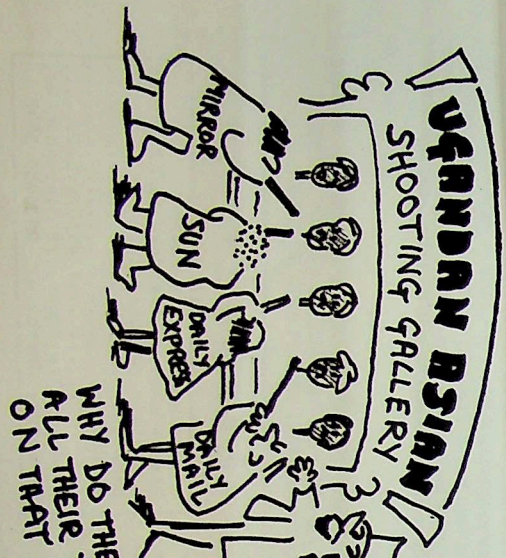 UGANDAN ASIAN
SHOOTING GALLERY
MIRROR
SUN
DAILY
EXPRESS
DAILY
MAIL
WHY DO THE
ALL THEIR
ON THAT